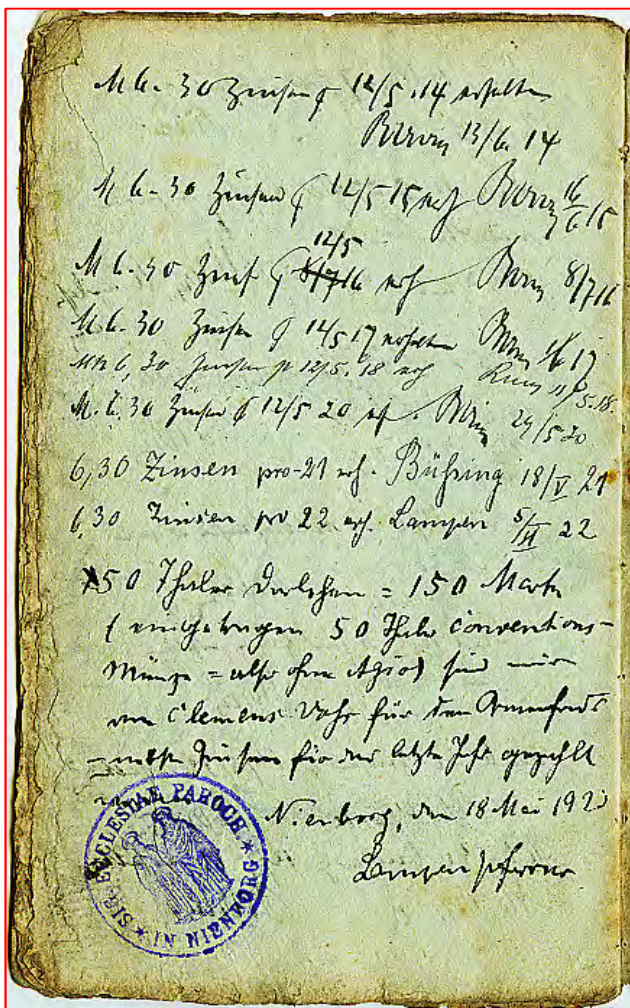 M 6.30 Zinsen p 12/5.14 erhalten
13/6. 14
M 6.30 Zinsen p 12/5 15 erh 16/6 15
12/5
M 6.30 Zins p 8/7 16 erh 8/7 16
M. 6.30 Zinsen p 12/5 17 erhalten 17
Mk 6,30 Zinsen p 12/5. 18 erh 11/5.18.
M. 6.30 Zinsen p 12/5 20 erh. 29/5 20
6,30 Zinsen pro 21 erh. Bühsing 18/V 21
6,30 Zinsen pro 22 erh. Lampen 5/VI 22
50 Thaler Darlehen = 150 Mark
(eingetragen 50 Thaler Conventions-
Münze = also ohne Agio) sind mir
von Clemens für den Armenfonds
nebst Zinsen für das letzte Jahr gezahlt
Nienborg, den 18 Mai 192
Lampen Pfarrer
SIG. ECCLESIAE PAROCH. IN NIENBORG